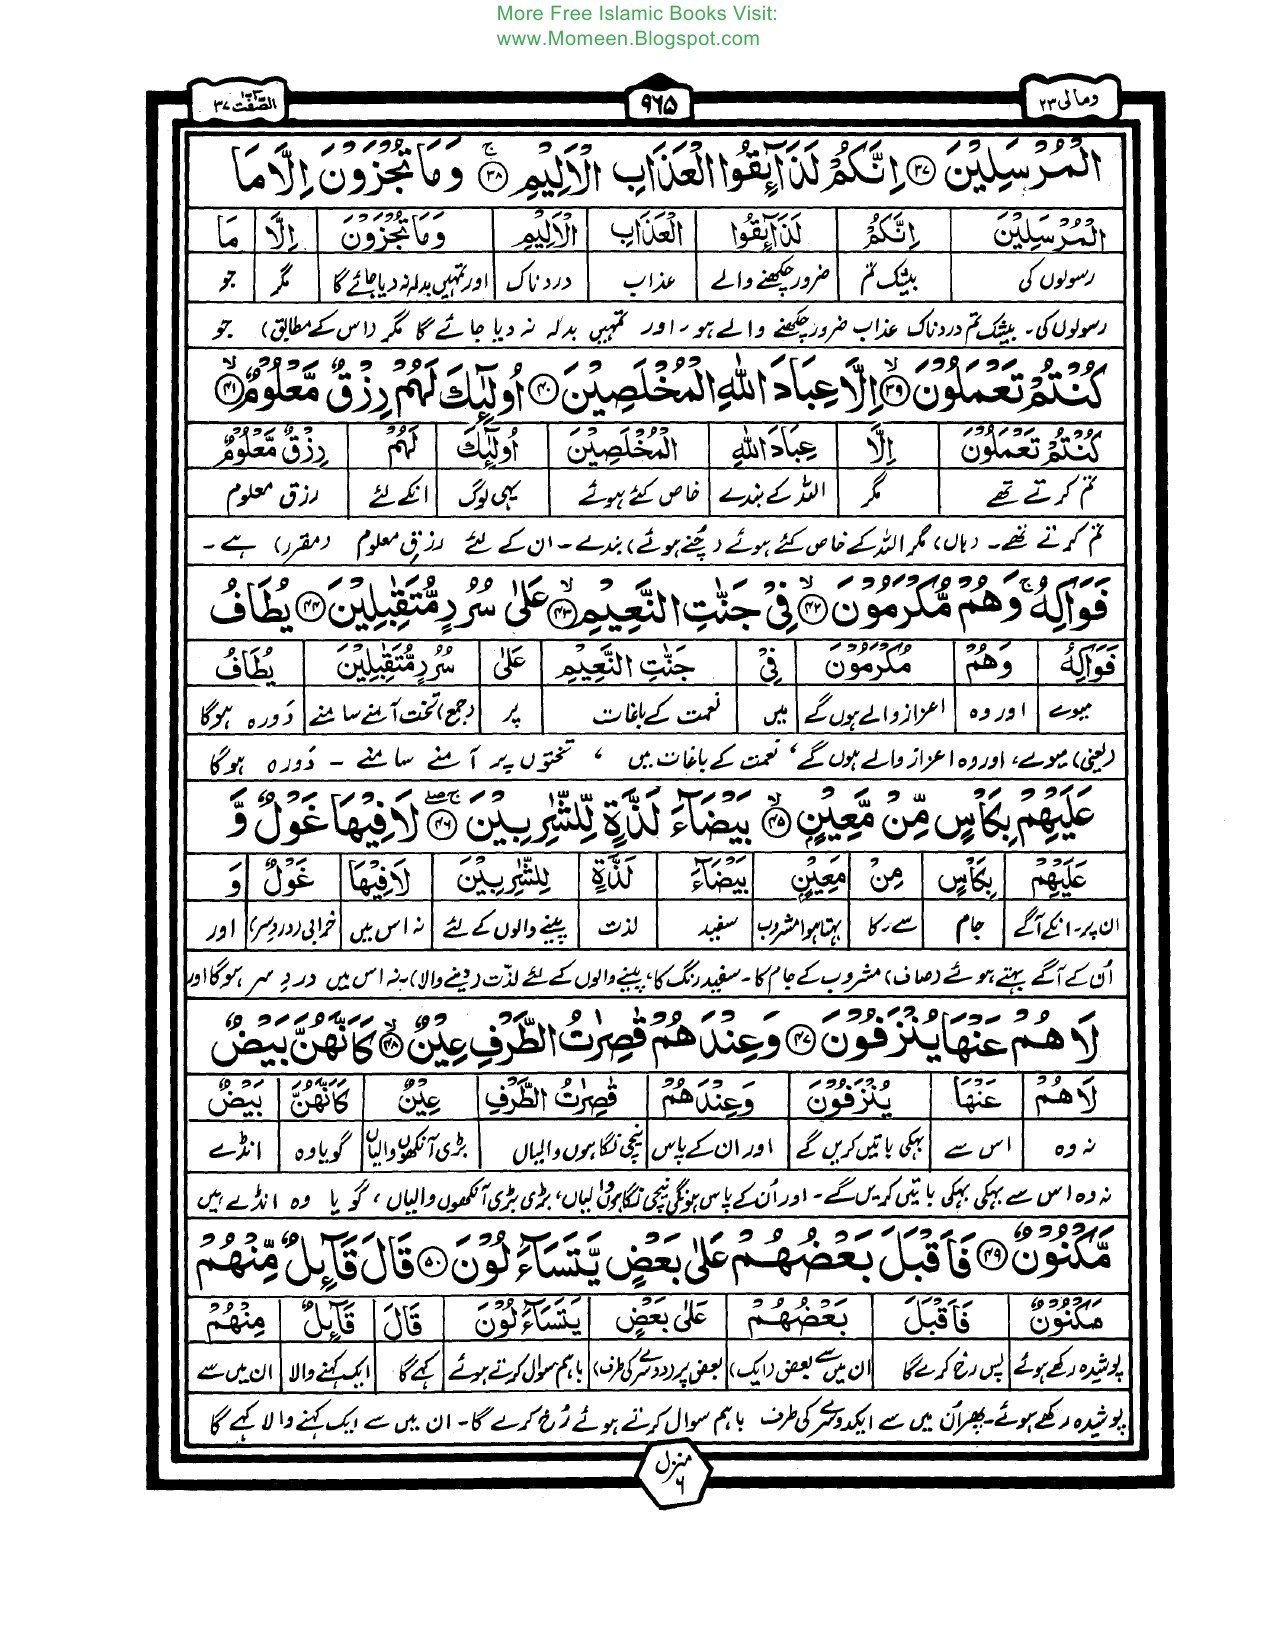 More Free Islamic Books Visit:
www.Momeen.Blogspot.com
ومالی ۲۳
۹۶۵
الصّٰفّٰت ۳۷
الْمُرْسَلِیْنَ ۳۷ اِنَّكُمْ لَذَآئِقُوا الْعَذَابِ الْاَلِیْمِ ۳۸ وَ مَا تُجْزَوْنَ اِلَّا مَا
الْمُرْسَلِیْنَ اِنَّكُمْ لَذَآئِقُوا الْعَذَابِ الْاَلِیْمِ وَمَا تُجْزَوْنَ اِلَّا مَا
رسولوں کی بیشک تم ضرور چکھنے والے عذاب دردناک اور تمہیں بدلہ نہ دیا جائے گا مگر جو
رسولوں کی۔ بیشک تم دردناک عذاب ضرور چکھنے والے ہو، اور تمہیں بدلہ نہ دیا جائے گا مگر (اس کے مطابق) جو
كُنْتُمْ تَعْمَلُوْنَ ۳۹ اِلَّا عِبَادَ اللّٰهِ الْمُخْلَصِیْنَ ۴۰ اُولٰٓئِكَ لَهُمْ رِزْقٌ مَّعْلُوْمٌ ۴۱
كُنْتُمْ تَعْمَلُوْنَ اِلَّا عِبَادَ اللّٰهِ الْمُخْلَصِیْنَ اُولٰٓئِكَ لَهُمْ رِزْقٌ مَّعْلُوْمٌ
تم کرتے تھے مگر اللہ کے بندے خاص کئے ہوئے یہی لوگ انکے لئے رزق معلوم
تم کرتے تھے۔ (ہاں) مگر اللہ کے خاص کئے ہوئے (چُنے ہوئے) بندے۔ ان کے لئے رزقِ معلوم (مقرر) ہے۔
فَوَاكِهُ وَهُمْ مُّكْرَمُوْنَ ۴۲ فِیْ جَنّٰتِ النَّعِیْمِ ۴۳ عَلٰی سُرُرٍ مُّتَقٰبِلِیْنَ ۴۴ یُطَافُ
فَوَاكِهُ وَهُمْ مُكْرَمُوْنَ فِیْ جَنّٰتِ النَّعِیْمِ عَلٰی سُرُرٍ مُّتَقٰبِلِیْنَ یُطَافُ
میوے اور وہ اعزاز والے ہوں گے میں نعمت کے باغات پر (جمع) تخت آمنے سامنے دَورہ ہوگا
(یعنی) میوے، اور وہ اعزاز والے ہوں گے، نعمت کے باغات میں، تختوں پر آمنے سامنے۔ دَورہ ہوگا
عَلَیْهِمْ بِكَاْسٍ مِّنْ مَّعِیْنٍ ۴۵ بَیْضَآءَ لَذَّةٍ لِّلشّٰرِبِیْنَ ۴۶ لَا فِیْهَا غَوْلٌ وَّ
عَلَیْهِمْ بِكَاْسٍ مِنْ مَعِیْنٍ بَیْضَآءَ لَذَّةٍ لِلشّٰرِبِیْنَ لَا فِیْهَا غَوْلٌ وَ
ان پر۔ انکے آگے جام سے۔ کا بہتا ہوا مشروب سفید لذت پینے والوں کے لئے نہ اس میں خرابی (دردِ سر) اور
اُن کے آگے بہتے ہوئے (صاف) مشروب کے جام کا۔ سفید رنگ کا، پینے والوں کے لئے لذّت (دینے والا)۔ نہ اس میں دردِ سر ہوگا اور
لَا هُمْ عَنْهَا یُنْزَفُوْنَ ۴۷ وَعِنْدَهُمْ قٰصِرٰتُ الطَّرْفِ عِیْنٌ ۴۸ كَاَنَّهُنَّ بَیْضٌ
لَا هُمْ عَنْهَا یُنْزَفُوْنَ وَعِنْدَهُمْ قٰصِرٰتُ الطَّرْفِ عِیْنٌ كَاَنَّهُنَّ بَیْضٌ
نہ وہ اس سے بہکی باتیں کریں گے اور ان کے پاس نیچی نگاہوں والیاں بڑی آنکھوں والیاں گویا وہ انڈے
نہ وہ اس سے بہکی بہکی باتیں کریں گے۔ اور اُن کے پاس ہونگی نیچی نگاہوں والیاں، بڑی بڑی آنکھوں والیاں، گویا وہ انڈے ہیں
مَّكْنُوْنٌ ۴۹ فَاَقْبَلَ بَعْضُهُمْ عَلٰی بَعْضٍ یَّتَسَآءَلُوْنَ ۵۰ قَالَ قَآئِلٌ مِّنْهُمْ
مَكْنُوْنٌ فَاَقْبَلَ بَعْضُهُمْ عَلٰی بَعْضٍ یَتَسَآءَلُوْنَ قَالَ قَآئِلٌ مِنْهُمْ
پوشیدہ رکھے ہوئے پس رخ کرے گا ان میں سے بعض (ایک) بعض پر (دوسرے کی طرف) باہم سوال کرتے ہوئے کہے گا ایک کہنے والا ان میں سے
پوشیدہ رکھے ہوئے۔ پھر اُن میں سے ایک دوسرے کی طرف باہم سوال کرتے ہوئے رُخ کرے گا۔ ان میں سے ایک کہنے والا کہے گا
منزل ۶